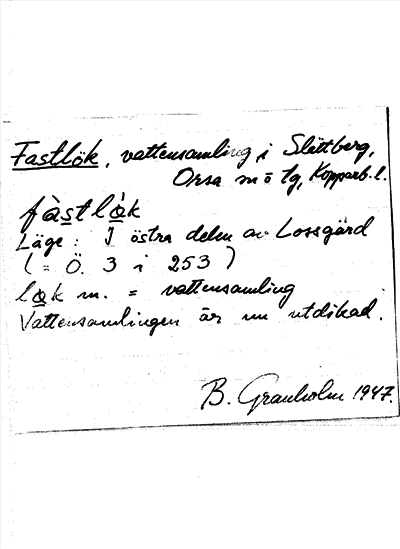 Fastlök, vattensamling i Slättberg,
Orsa sn o tg, Kopparb. l.
fàstlò̱k
Läge: I östra delen av Lossgärd
(= Ö. 3 i 253)
lo̱k m. = vattensamling
Vattensamlingen är nu utdikad.
B. Granholm 1947.